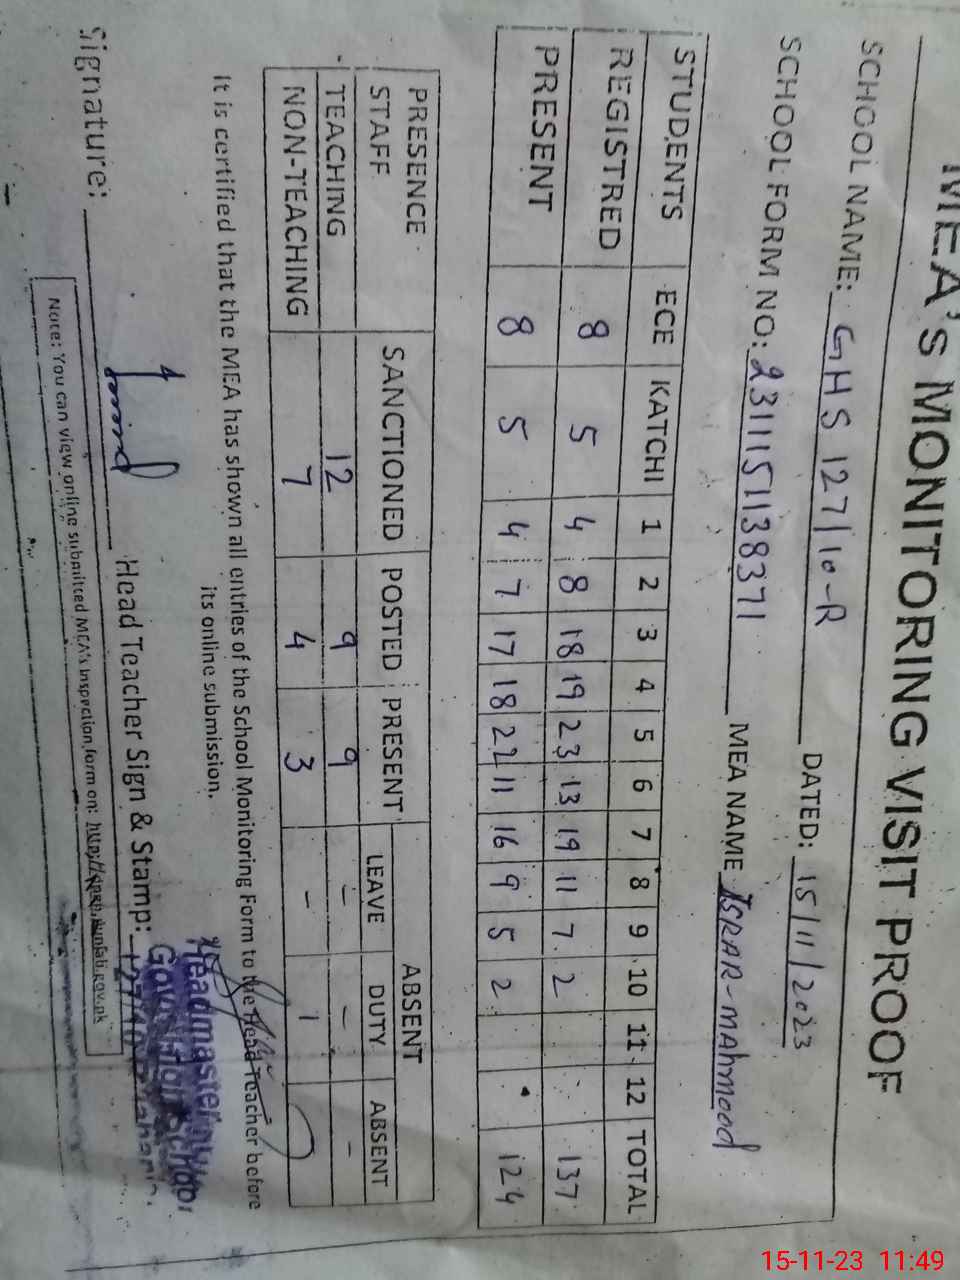 MEA's MONITORING VISIT PROOF
SCHOOL NAME: GHS 127/10-R DATED: 15/11/2023
SCHOOL FORM NO: 2311151138371 MEA NAME ISRAR-MAhmood
STUDENTS ECE KATCHI 1 2 3 4 5 6 7 8 9 10 11 12 TOTAL
REGISTRED 8 5 4 8 18 19 23 13 19 11 7 2 137
PRESENT 8 5 4 7 17 18 22 11 16 9 5 2 124
PRESENCE STAFF SANCTIONED POSTED PRESENT ABSENT
LEAVE DUTY ABSENT
TEACHING 12 9 9 - - -
NON-TEACHING 7 4 3 - 1
It is certified that the MEA has shown all entries of the School Monitoring Form to the Head Teacher before
its online submission.
Signature: Head Teacher Sign & Stamp:
Headmaster
Govt. High School
127/10
Note: You can view online submitted MEA's Inspection form on:
15-11-23 11:49